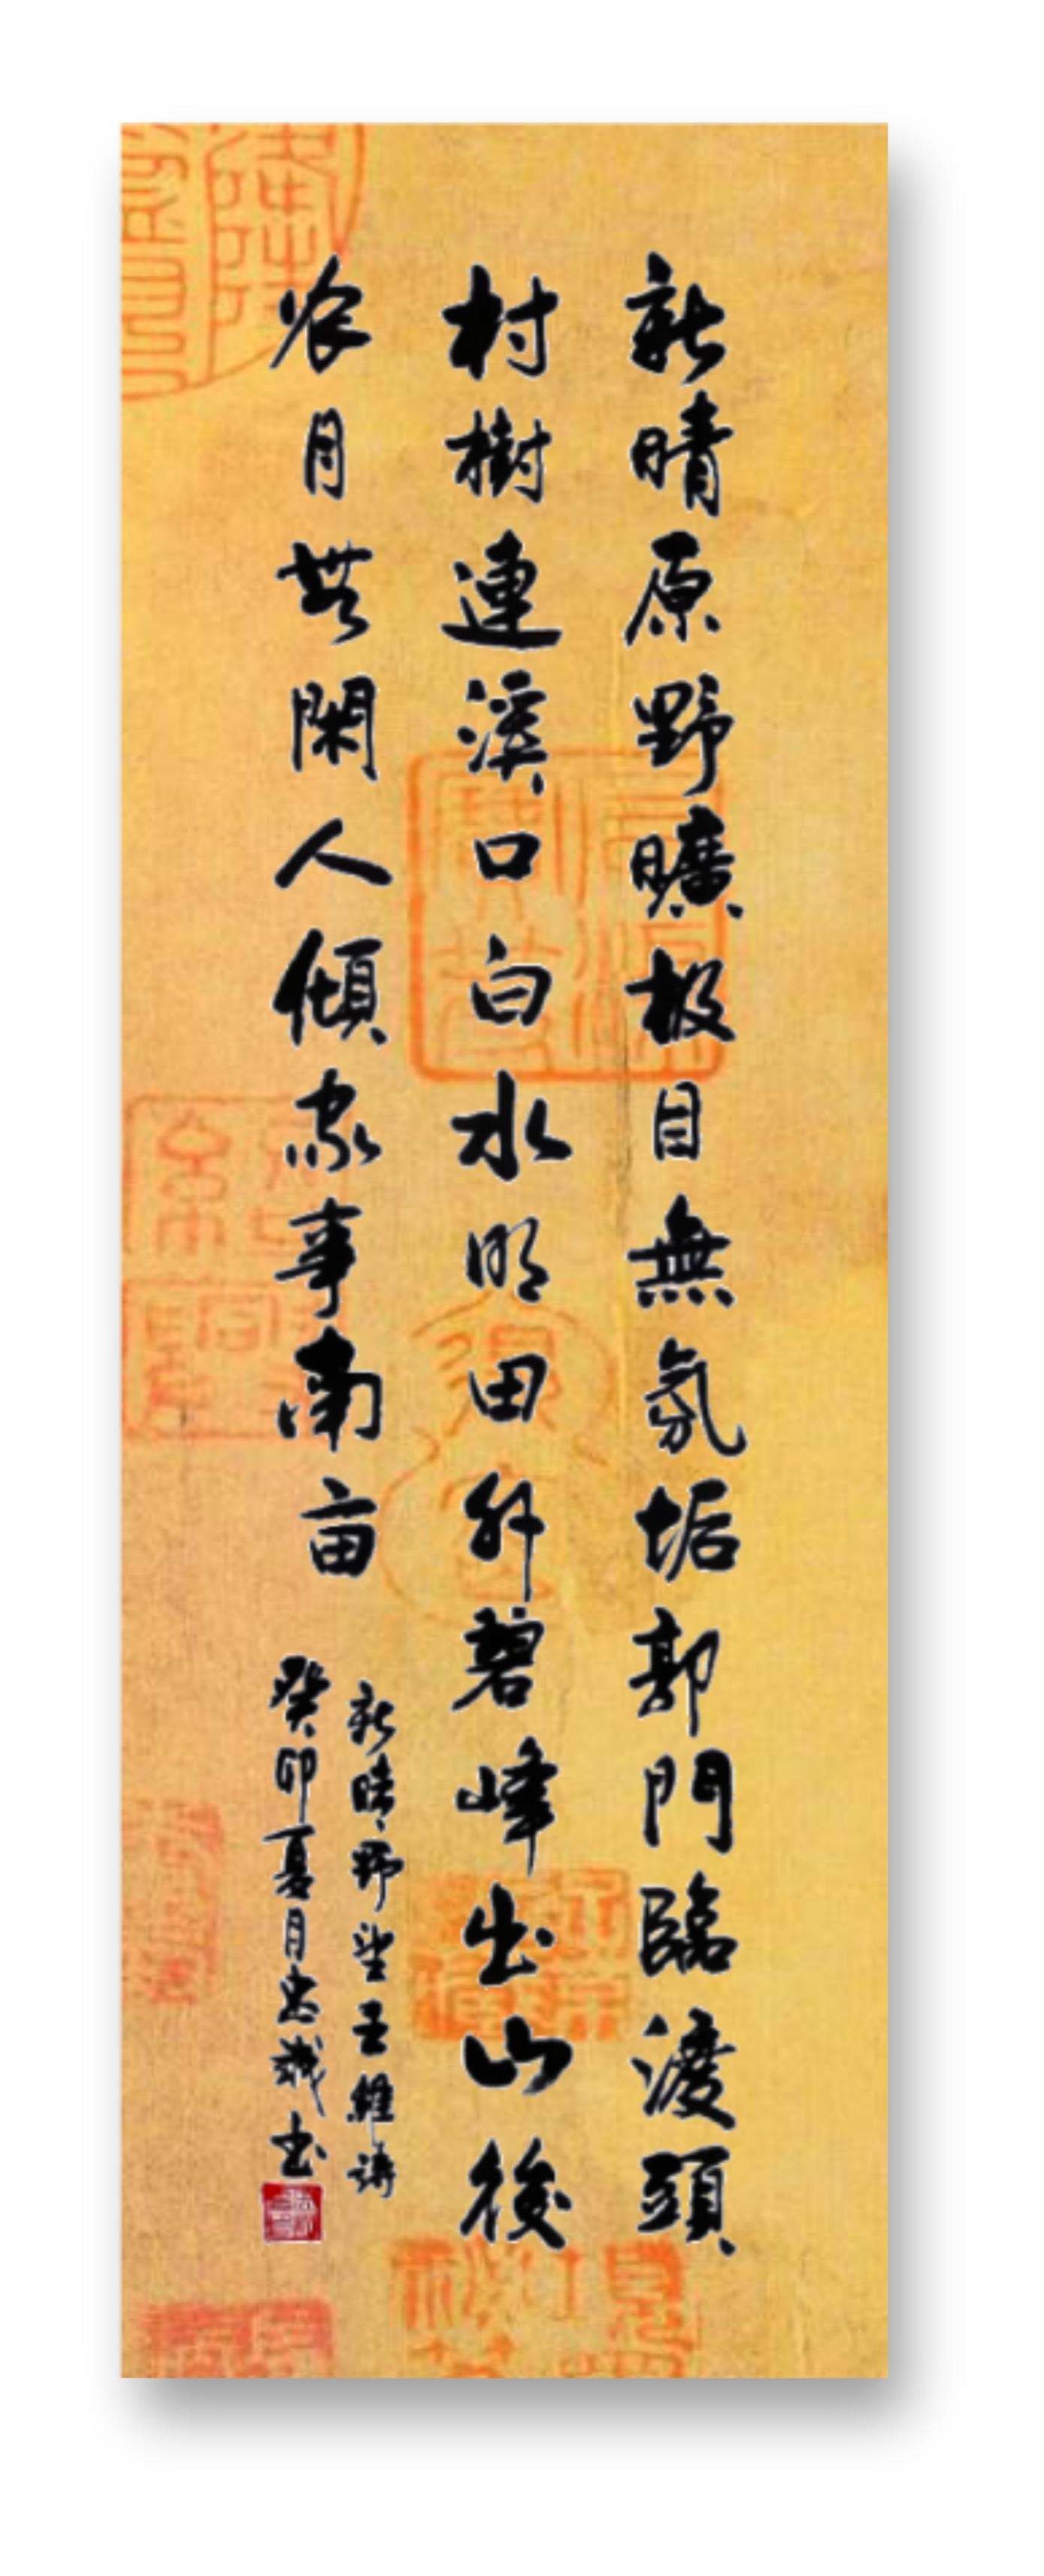 新晴原野曠極目無氛垢郭門臨渡頭
村樹連溪口白水明田外碧峰出山後
农月無閑人傾家事南亩
新晴野望王維詩
癸卯夏月忠誠书